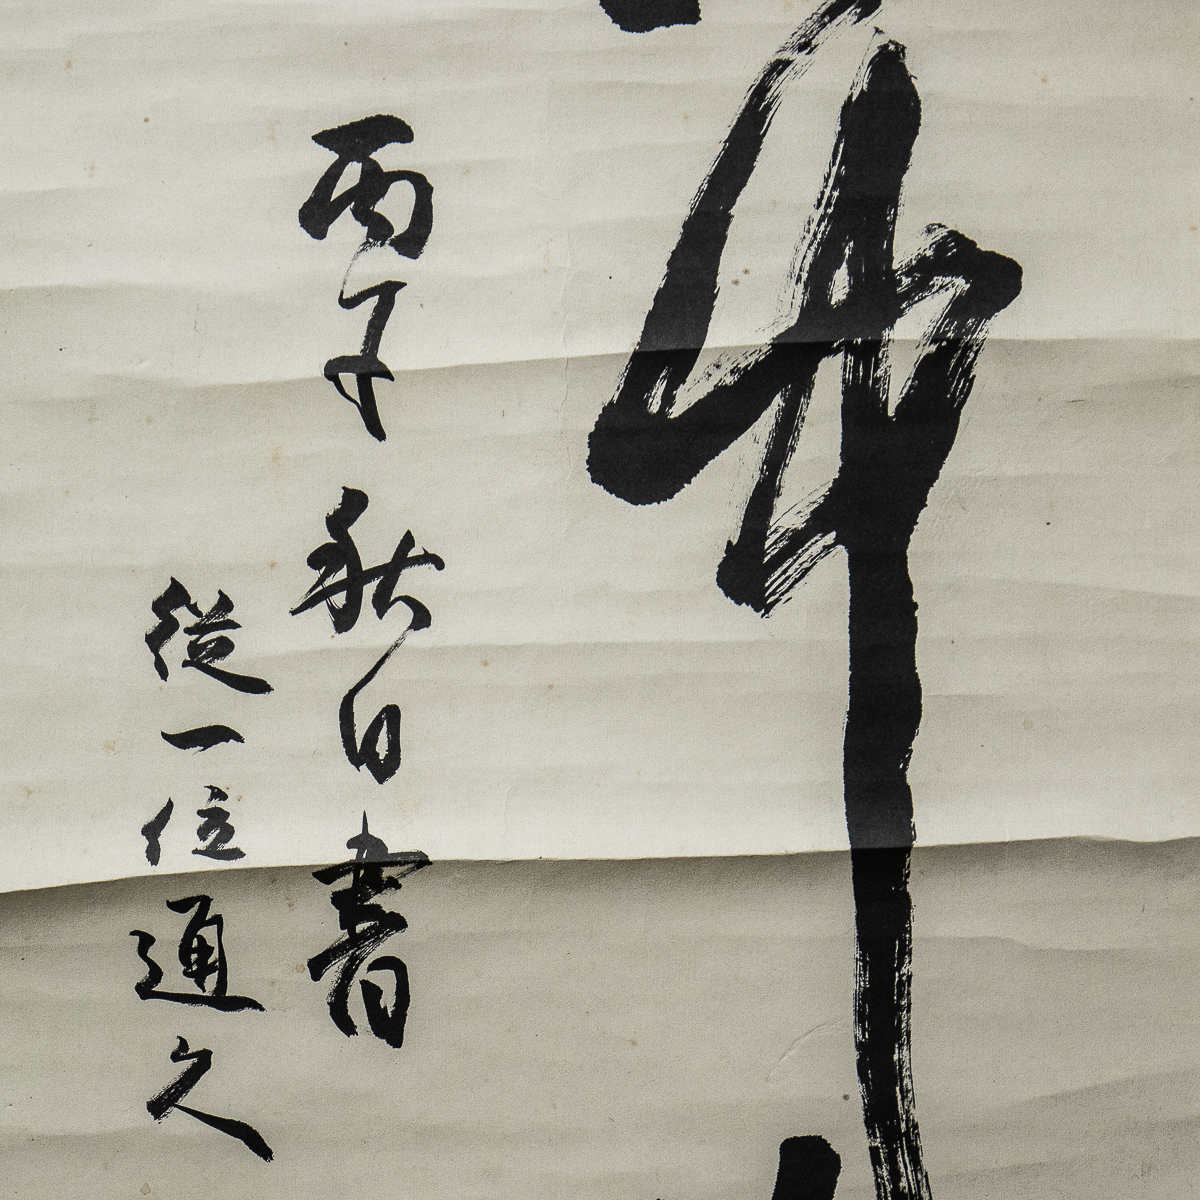 丙午秋日書
從一位通久